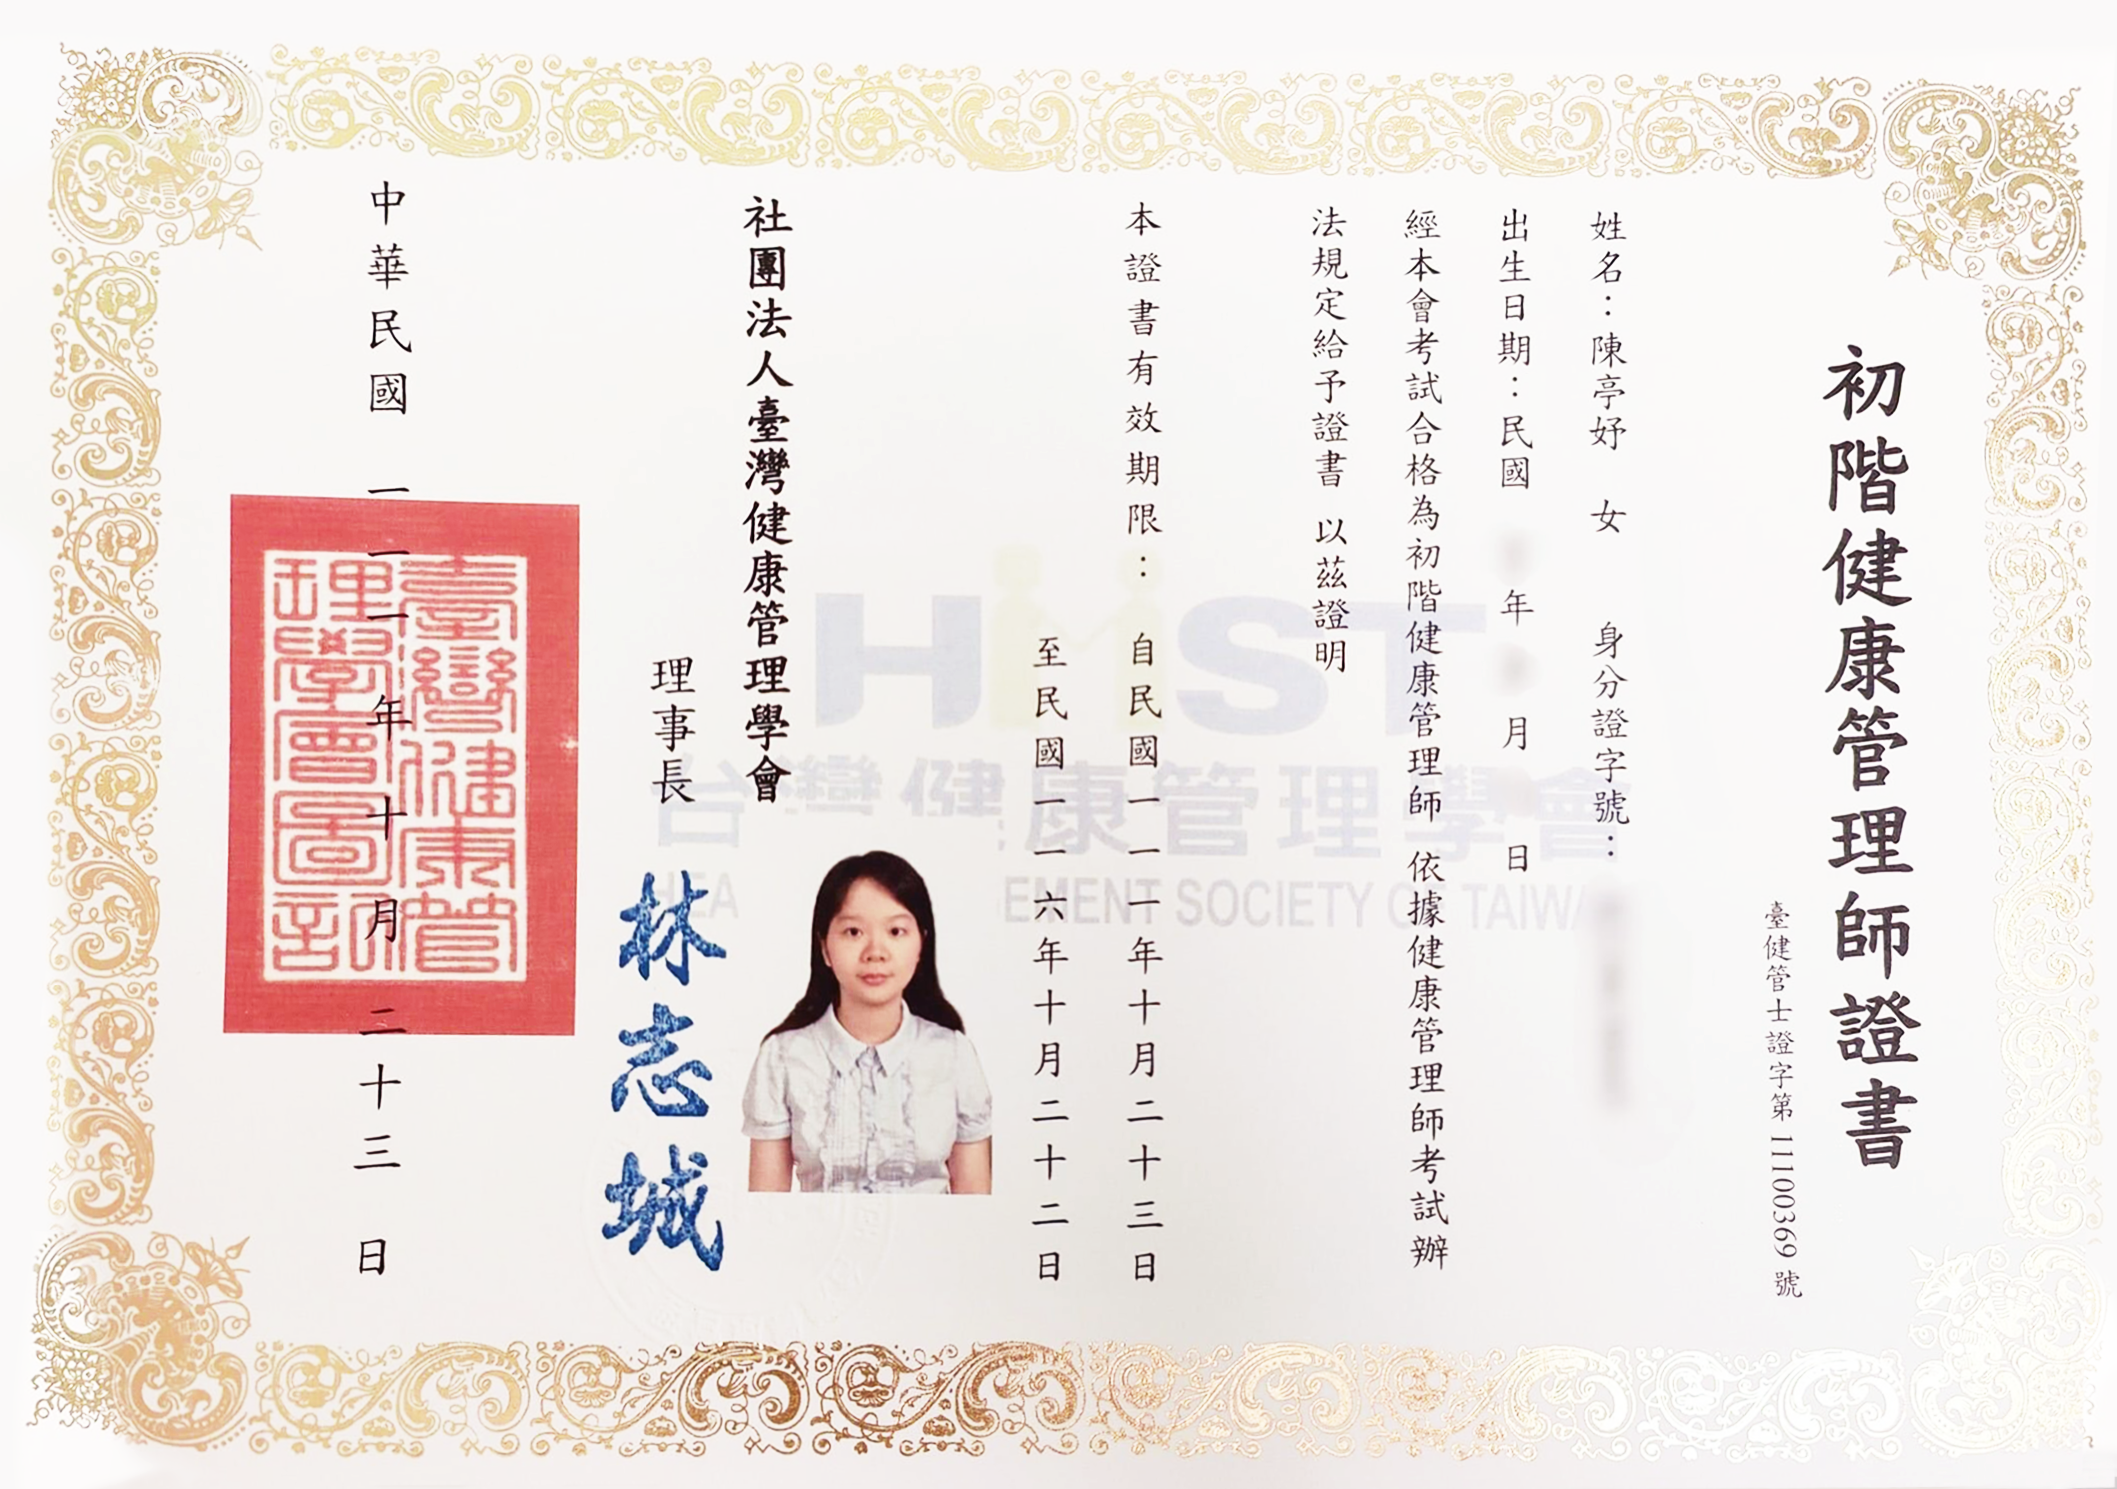 初階健康管理師證書
臺健管士證字第11100369號
姓名：陳亭妤　女　身分證字號：
出生日期：民國　年　月　日
經本會考試合格為初階健康管理師　依據健康管理師考試辦
法規定給予證書　以茲證明
本證書有效期限：自民國一一一年十月二十三日
至民國一一六年十月二十二日
社團法人臺灣健康管理學會
理事長
林志城
中華民國一一一年十月二十三日
臺灣健康管
理學會圖記
HMST
台灣健康管理學會
EMENT SOCIETY OF TAIWA